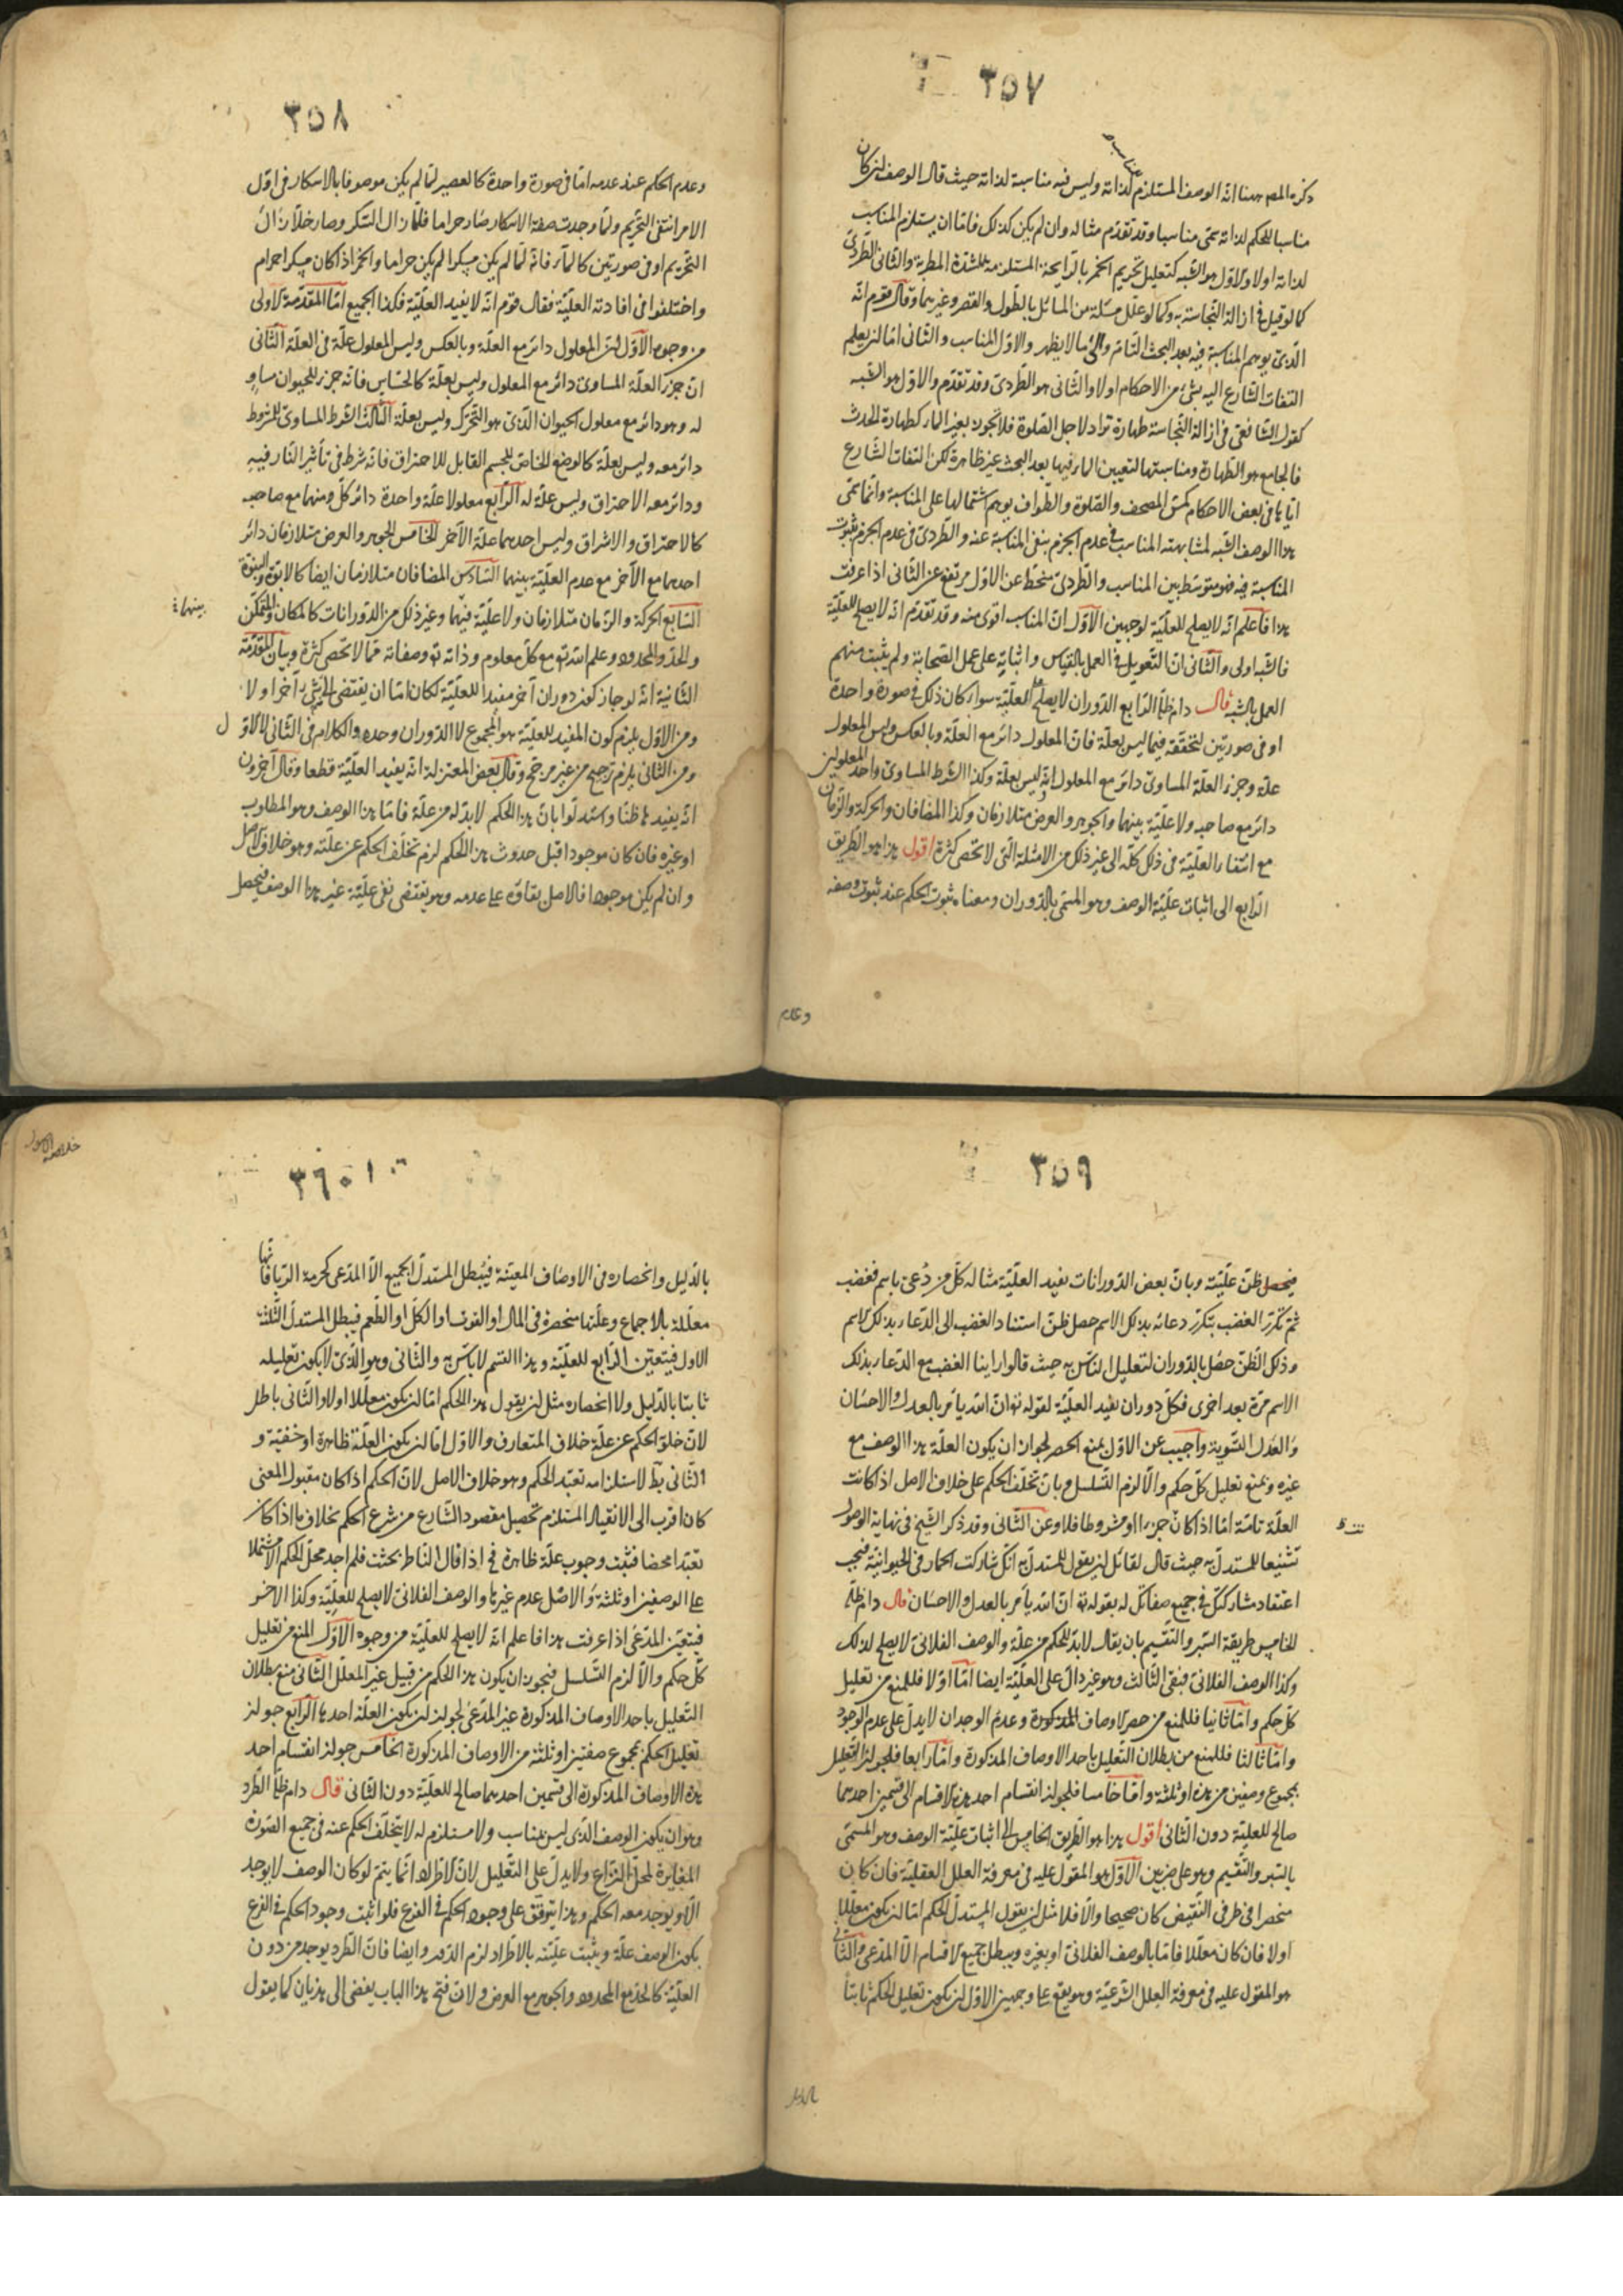 ٣٥٧
ذكره المصـ ههنا انّه الوصف المستلزم لذاته وليس فيه مناسبة لذاته حيث قال الوصف ان كان
مناسبا للحكم لذاته سمّى مناسبا وقد تقدّم مثاله وان لم يكن كذلك فامّا ان يستلزم المناسب
لذاته اولا والاوّل هو الشبه كتعليل تحريم الخمر بالرّايحة المستلزمة للشدّة المطربة والثانى الطّردىّ
كما لو قيل فى ازالة النّجاسة به وكما لو علّل مسئلة من المسائل بالطّول والقصر وغيرهما وقال قوم انّه
الّذى يوهم المناسبة فيه بعد البحث التّام والى ما لا يظهر والاوّل المناسب والثانى امّا ان يعلم
التفات الشّارع اليه بشئ من الاحكام اولا والثّانى هو الطّردىّ وقد تقدّم والاوّل هو الشبه
كقول الشّافعى فى ازالة النّجاسة طهارة تراد لاجل الصّلوة فلا تجوز بغير الماء كطهارة الحدث
فالجامع هو الطّهارة ومناسبتها لتعيين الماء فيها بعد البحث غير ظاهرة لكن التفات الشّارع
ايّاها فى بعض الاحكام كمسّ المصحف والصّلوة والطّواف يوهم اشتمالها على المناسبة وانّما سمّى
هذا الوصف الشّبه لمشابهته المناسب فى عدم الجزم بنفى المناسبة عنه والطّردىّ فى عدم الجزم بثبوت
المناسبة فيه فهو متوسّط بين المناسب والطّردىّ منحطّ عن الاوّل مرتفع عن الثانى اذا عرفت
هذا فاعلم انّه لا يصلح للعلّيّة لوجهين الاوّل انّ المناسب اقوى منه وقد تقدّم انّه لا يصلح للعلّيّة
فالشّبه اولى والثّانى انّ التّعويل فى العمل بالقياس واثباته على عمل الصّحابة ولم يثبت منهم
العمل بالشبه قال دام ظلّه الرّابع الدّوران لا يصلح للعلّيّة سواء كان ذلك فى صورة واحدة
او فى صورتين لتحقّقه فيما ليس بعلّة فانّ المعلول دائر مع العلّة وبالعكس وليس المعلول
علّة وجزء العلّة المساوى دائر مع المعلول وليس بعلّة وكذا الشّرط المساوى واحد المعلولين
دائر مع صاحبه ولا علّيّة بينهما والجوهر والعرض متلازمان وكذا المضافان والحركة والزّمان
مع انتفاء العلّيّة فى ذلك كلّه الى غير ذلك من الامثلة الّتى لا تحصى كثرة اقول هذا هو الطّريق
الرّابع الى اثبات علّيّة الوصف وهو المسمّى بالدّوران ومعناه ثبوت الحكم عند ثبوت وصفه
وعدم
٣٥٨
وعدم الحكم عند عدمه امّا فى صورة واحدة كالعصير لمّا لم يكن موصوفا بالاسكار فى اوّل
الامر انتفى التّحريم ولمّا وجدت صفة الاسكار صار حراما فلمّا زال السّكر وصار خلّا زال
التّحريم او فى صورتين كالماء فانّه لمّا لم يكن مسكرا لم يكن حراما والخمر اذا كان مسكرا حرام
واختلفوا فى افادته العلّيّة فقال قوم انّه لا يفيد العلّيّة فكذا الجميع امّا المقدّمة الاولى
من وجوه الاوّل انّ المعلول دائر مع العلّة وبالعكس وليس المعلول علّة فى العلّة الثّانى
انّ جزء العلّة المساوى دائر مع المعلول وليس بعلّة كالحسّاس فانّه جزء للحيوان مساو
له وهو دائر مع معلول الحيوان الّذى هو التّحرّك وليس بعلّة الثّالث الشّرط المساوى للمشروط
دائر معه وليس بعلّة كالوضع الخاصّ للجسم القابل للاحتراق فانّه شرط فى تأثير النّار فيه
ودائر معه الاحتراق وليس علّة له الرّابع معلولا علّة واحدة دائر كلّ منهما مع صاحبه
كالاحتراق والاشراق وليس احدهما علّة الآخر الخامس الجوهر والعرض متلازمان دائر
احدهما مع الآخر مع عدم العلّيّة بينهما السّادس المضافان متلازمان ايضا كالابوّة والبنوّة
السّابع الحركة والزّمان متلازمان ولا علّيّة فيهما وغير ذلك من الدّورانات كالمكان والمتمكّن
بينهما
والحدّ والمحدود وعلم الله تع مع كلّ معلوم وذاته تع وصفاته ممّا لا تحصى كثرة وبيان المقدّمة
الثّانية انّه لو جاز كون دوران آخر مفيدا للعلّيّة لكان امّا ان يقتضى الى شئ آخر اولا
ومن الاوّل يلزم كون المفيد للعلّيّة هو المجموع لا الدّوران وحده والكلام فى الثّانى لا الاوّل
ومن الثّانى يلزم ترجيح من غير مرجّح وقال بعض المعتزلة انّه يفيد العلّيّة قطعا وقال آخرون
انّه يفيدها ظنّا واستدلّوا بانّ هذا الحكم لا بدّ له من علّة فامّا هذا الوصف وهو المطلوب
او غيره فان كان موجودا قبل حدوث هذا الحكم لزم تخلّف الحكم عن علّته وهو خلاف الاصل
وان لم يكن موجودا فالاصل بقاؤه على عدمه وهو يقتضى نفى علّيّة غير هذا الوصف فيحصل
٣٥٩
فيحصل ظنّ علّيّته وبانّ بعض الدّورانات يفيد العلّيّة مثاله كلّ من دُعى باسم فغضب
ثمّ تكرّر الغضب بتكرّر دعائه بذلك الاسم حصل ظنّ استناد الغضب الى الدّعاء بذلك الاسم
وذلك الظّنّ حصل بالدّوران لتعليل النّاس به حيث قالوا راينا الغضب مع الدّعاء بذلك
الاسم مرّة بعد اخرى فكلّ دوران يفيد العلّيّة لقوله تع انّ الله يأمر بالعدل والاحسان
والعدل التّسوية واجيب عن الاوّل بمنع الحصر لجواز ان يكون العلّة هذا الوصف مع
غيره وبمنع تعليل كلّ حكم والّا لزم التّسلسل وبانّ تخلّف الحكم على خلاف الاصل اذا كانت
العلّة تامّة امّا اذا كان جزءا او مشروطا فلا وعن الثّانى وقد ذكر الشّيخ فى نهاية الوصول
تشنيعا للمستدلّ به حيث قال لقائل ان يقول للمستدلّ به انّك شاركت الحمار فى الحيوانيّة فيجب
اعتقاد مشاركتك فى جميع صفاتك له بقوله تع انّ الله يأمر بالعدل والاحسان قال دام ظلّه
الخامس طريقة السّبر والتّقسيم بان يقال لا بدّ للحكم من علّة والوصف الفلانى لا يصلح لذلك
وكذا الوصف الفلانى فبقى الثّالث وهو غير دالّ على العلّيّة ايضا امّا اوّلا فللمنع من تعليل
كلّ حكم وامّا ثانيا فللمنع من حصر الاوصاف المذكورة وعدم الوجدان لا يدلّ على عدم الوجود
وامّا ثالثا فللمنع من بطلان التّعليل باحد الاوصاف المذكورة وامّا رابعا فلجواز التّعليل
بمجموع وصفين من هذه او ثلثة وامّا خامسا فلجواز انقسام احد هذه الاقسام الى قسمين احدهما
صالح للعلّيّة دون الثّانى اقول هذا هو الطّريق الخامس الى اثبات علّيّة الوصف وهو المسمّى
بالسّبر والتّقسيم وهو على ضربين الاوّل هو المقول عليه فى معرفة العلل العقليّة فان كان
منحصرا فى طرفى النّقيض كان صحيحا والّا فلا مثل ان يقول المستدلّ الحكم امّا ان يكون معلّلا
اولا فان كان معلّلا فامّا بالوصف الفلانى او بغيره ويبطل جميع الاقسام الّا المدّعى والثّانى
هو المقول عليه فى معرفة العلل الشّرعيّة وهو يقع على وجهين الاوّل ان يكون تعليل الحكم ثابتا
بالدليل
خلاصة الاصول
٣٦٠
بالدّليل وانحصاره فى الاوصاف المعيّنة فيبطل المستدلّ الجميع الّا المدّعى كحرمة الرّبا فانّها
معلّلة بالاجماع وعلّتها منحصرة فى المال او القوت او الكيل او الطّعم فيبطل المستدلّ الثّلثة
الاول فيتعيّن الرّابع للعلّيّة وهذا القسم لا بأس به والثّانى وهو الّذى لا يكون تعليله
ثابتا بالدّليل ولا انحصاره مثل ان يقول هذا الحكم امّا ان يكون معلّلا اولا والثّانى باطل
لانّ خلوّ الحكم عن علّة خلاف المتعارف والاوّل امّا ان يكون العلّة ظاهرة او خفيّة و
الثّانى بط لاستلزامه تعبّد الحكم وهو خلاف الاصل لانّ الحكم اذا كان مقبول المعنى
كان اقرب الى الانقياد المستلزم تحصيل مقصود الشّارع من شرع الحكم بخلاف ما اذا كان
تعبّدا محضا فثبت وجوب علّة ظاهرة فح اذا قال النّاظر بحثت فلم اجد محلّ الحكم الّا مشتملا
على الوصفين او ثلثة والاصل عدم غيرها والوصف الفلانى لا يصلح للعلّيّة وكذا الاخر
فيتعيّن المدّعى اذا عرفت هذا فاعلم انّه لا يصلح للعلّيّة من وجوه الاوّل المنع من تعليل
كلّ حكم والّا لزم التّسلسل فيجوز ان يكون هذا الحكم من قبيل غير المعلّل الثّانى منع بطلان
التّعليل باحد الاوصاف المذكورة غير المدّعى لجواز ان يكون العلّة احدها الرّابع جواز
تعليل الحكم بمجموع صفتين او ثلثة من الاوصاف المذكورة الخامس جواز انقسام احد
هذه الاوصاف المذكورة الى قسمين احدهما صالح للعلّيّة دون الثّانى قال دام ظلّه الطّرد
وهو ان يكون الوصف الّذى ليس بمناسب ولا مستلزم له لا يتخلّف الحكم عنه فى جميع الصّور
المغايرة لمحلّ النّزاع ولا يدلّ على التّعليل لانّ الاطّراد انّما يتمّ لو كان الوصف لا يوجد
الّا ويوجد معه الحكم وهذا يتوقّف على وجود الحكم فى الفرع فلو اثبت وجود الحكم فى الفرع
بكون الوصف علّة ويثبت علّيّته بالاطّراد لزم الدّور وايضا فانّ الطّرد يوجد من دون
العلّيّة كالحدّ مع المحدود والجوهر مع العرض ولانّ فتح هذا الباب يفضى الى هذيان كما يقول